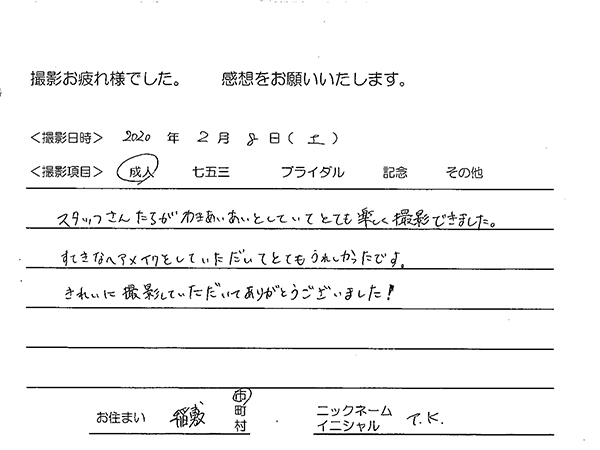 撮影お疲れ様でした。 感想をお願いいたします。
＜撮影日時＞ 2020 年 2 月 8 日 ( 土 )
＜撮影項目＞ 成人 七五三 ブライダル 記念 その他
スタッフさんたちがわきあいあいとしていてとても楽しく撮影できました。
すてきなヘアメイクをしていただいてとてもうれしかったです。
きれいに撮影していただいてありがとうございました!
お住まい 稲敷 市 町 村 ニックネーム イニシャル T.K.